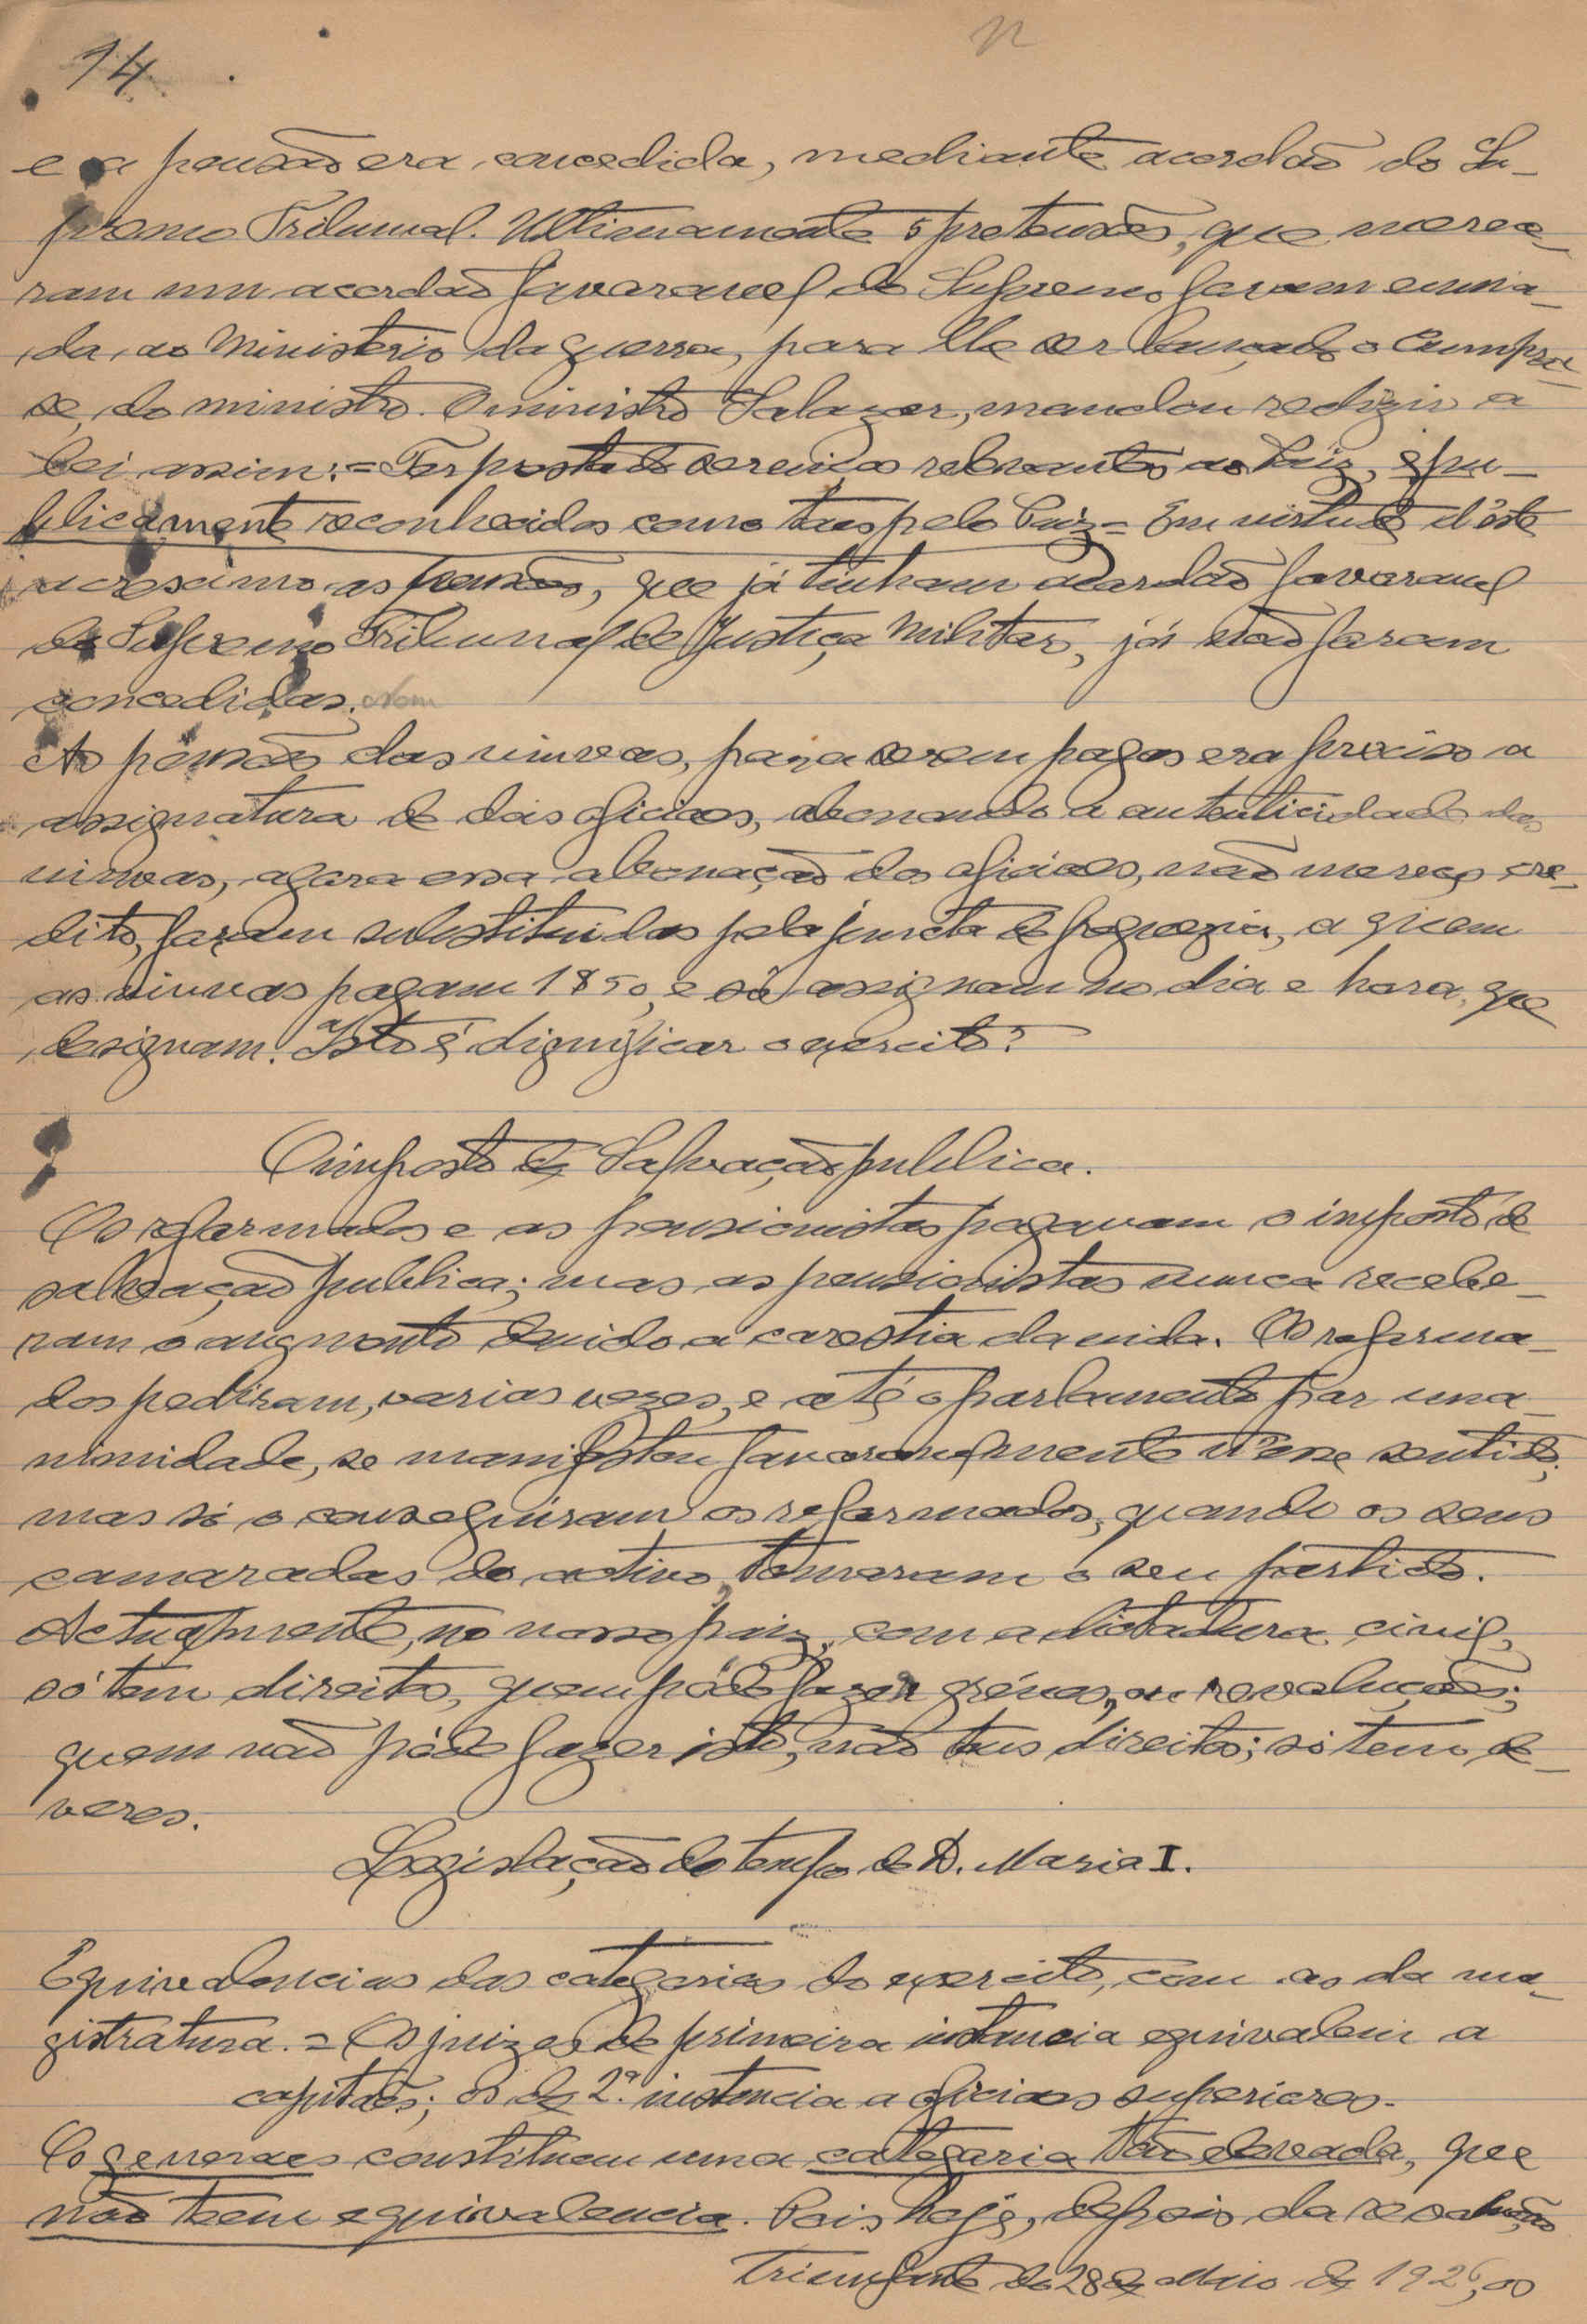 14
e a pensão era concedida, mediante acordão do Su-
premo Tribunal. Ultimamente 5 pretensões, que merece-
ram um acordão favoravel do Supremo foram envia-
da, ao Ministerio da guerra, para lhe ser lançado o Cumpra-
se, do ministro. O ministro Salazar, mandou redigir a
lei assim: = Ter prestado serviços relevantes ao Paiz, e pu-
blicamente reconhecidos como taes pelo Paiz = Em virtude d'este
acrescimo as pensões, que já tinham acordão favoravel
do Supremo Tribunal de Justiça Militar, já não foram
concedidas.
As pensões das viuvas, para serem pagas era preciso a
assignatura de dois oficiaes, abonando a autenticidade das
viuvas, agora essa abonação dos oficiaes, não merece cre-
dito, foram substituidos pela juncta de freguezia, a quem
as viuvas pagam 1$50, e só assignam no dia e hora, que
designam. Isto é dignificar o exercito?
O imposto de Salvação publica.
Os reformados e as pensionistas pagavam o imposto de
salvação publica; mas as pensionistas nunca recebe-
ram o augmento devido a carestia da vida. Os reforma-
dos pediram, varias vezes, e até o parlamento por una-
nimidade, se manifestou favoravelmente n'esse sentido;
mas só o conseguiram os reformados, quando os seus
camaradas do activo, tomaram o seu partido.
Actualmente, no nosso paiz, com a dictadura civil,
só tem direito, quem póde fazer gréves, ou revoluções;
quem não póde fazer isto, não tem direitos; só tem de-
veres.
Legislação do tempo de D. Maria I.
Equivalencias das categorias do exercito, com as da ma-
gistratura. = Os juizes de primeira instancia equivalem a
capitães; os de 2.ª instancia a oficiaes superiores.
Os generaes constituem uma categoria tão elevada, que
não teem equivalencia. Pois hoje, depois da revolução
triunfante de 28 de Maio de 1926, os